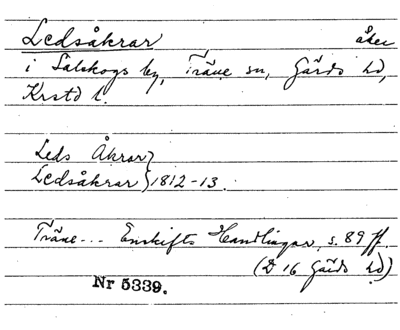 Ledsåkrar åker
i Sälskogs by, Träne sn, Gärds hd,
Krstd l.
Leds Åkrar }
Ledsåkrar } 1812-13.
Träne... Enskifts Handlingar, s. 89 ff.
(D 16 Gärds hd)
Nr 5339.